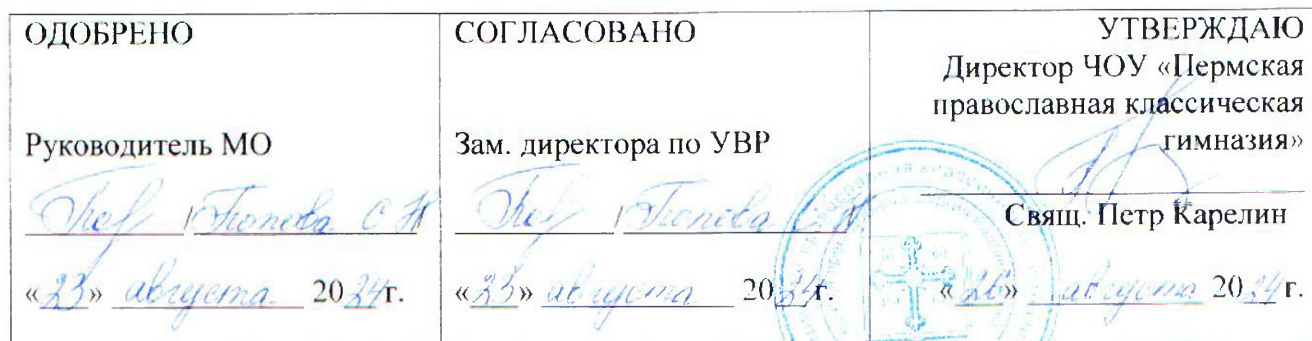 ОДОБРЕНО
Руководитель МО
Попова С Н
«23» августа 2024г.
СОГЛАСОВАНО
Зам. директора по УВР
Попова С.Н.
«23» августа 2024г.
УТВЕРЖДАЮ
Директор ЧОУ «Пермская
православная классическая
гимназия»
Свящ. Петр Карелин
«26» августа 2024г.